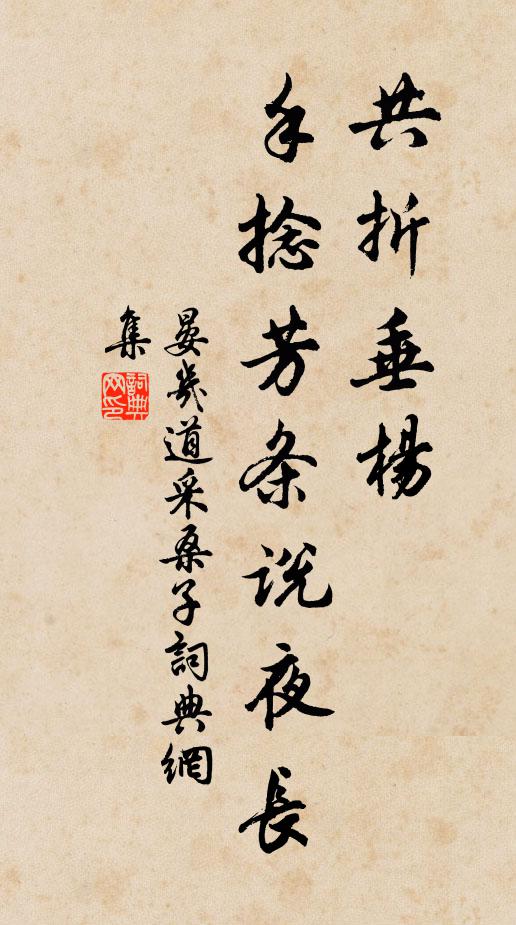 共折垂楊
手捻芳条说夜長
晏幾道采桑子詞典網
集
詞典网印